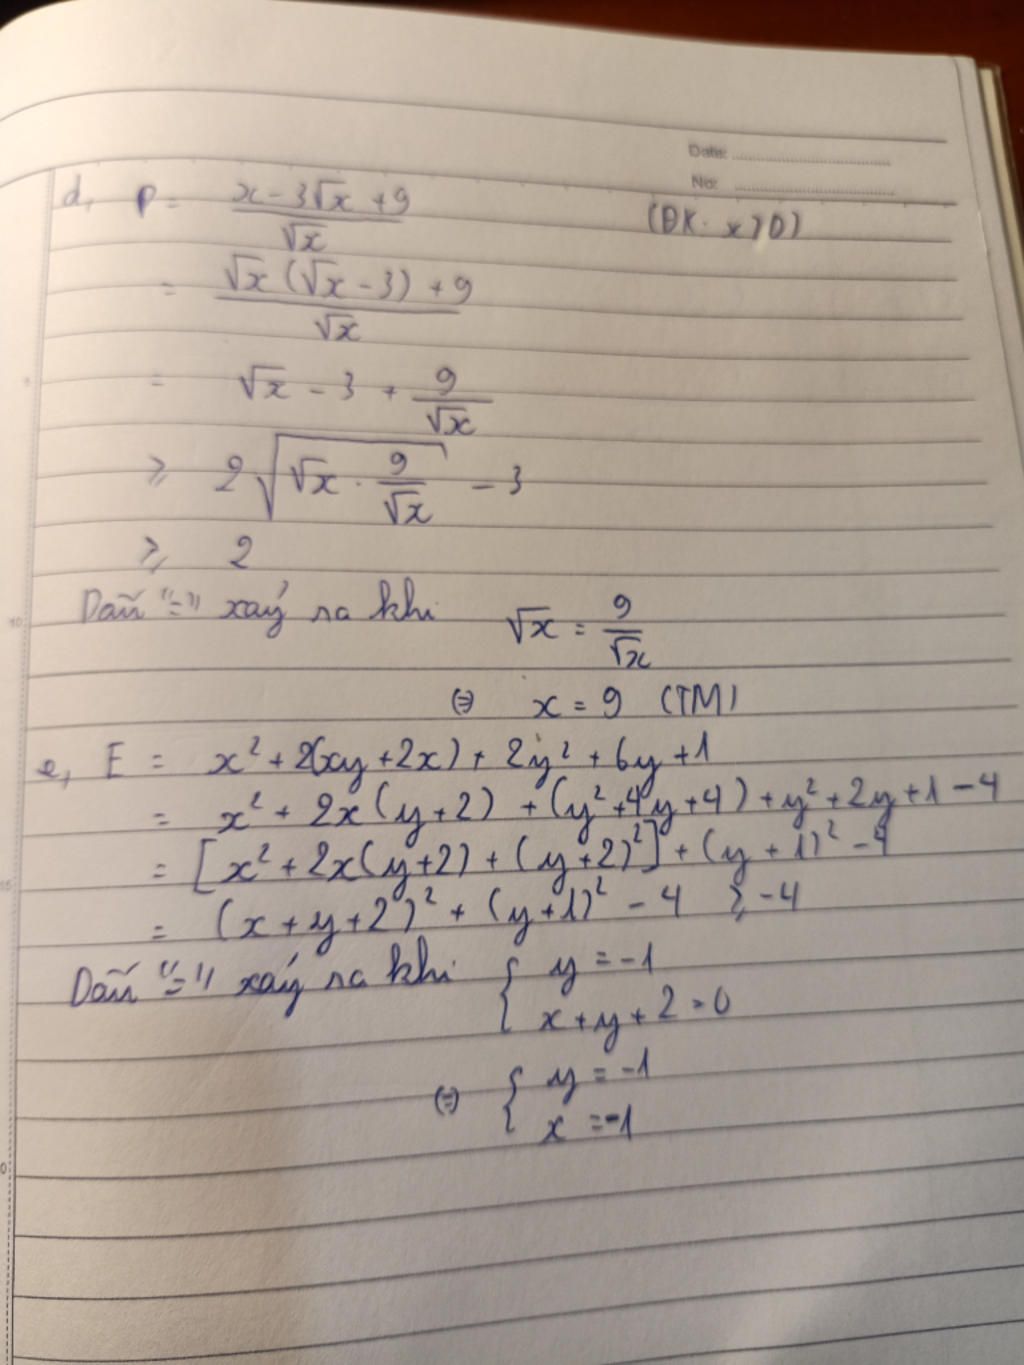 Date:
No:
d, P = \frac{x - 3\sqrt{x} + 9}{\sqrt{x}} (ĐK: x > 0)
= \frac{\sqrt{x}(\sqrt{x} - 3) + 9}{\sqrt{x}}
= \sqrt{x} - 3 + \frac{9}{\sqrt{x}}
⩾ 2\sqrt{\sqrt{x} . \frac{9}{\sqrt{x}}} - 3
⩾ 2
Dấu "=" xảy ra khi \sqrt{x} = \frac{9}{\sqrt{x}}
(=) x = 9 (TM)
e, E = x² + 2(xy + 2x) + 2y² + 6y + 1
= x² + 2x(y + 2) + (y² + 4y + 4) + y² + 2y + 1 - 4
= [x² + 2x(y + 2) + (y + 2)²] + (y + 1)² - 4
= (x + y + 2)² + (y + 1)² - 4 ⩾ -4
Dấu "=" xảy ra khi { y = -1
x + y + 2 = 0
(=) { y = -1
x = -1